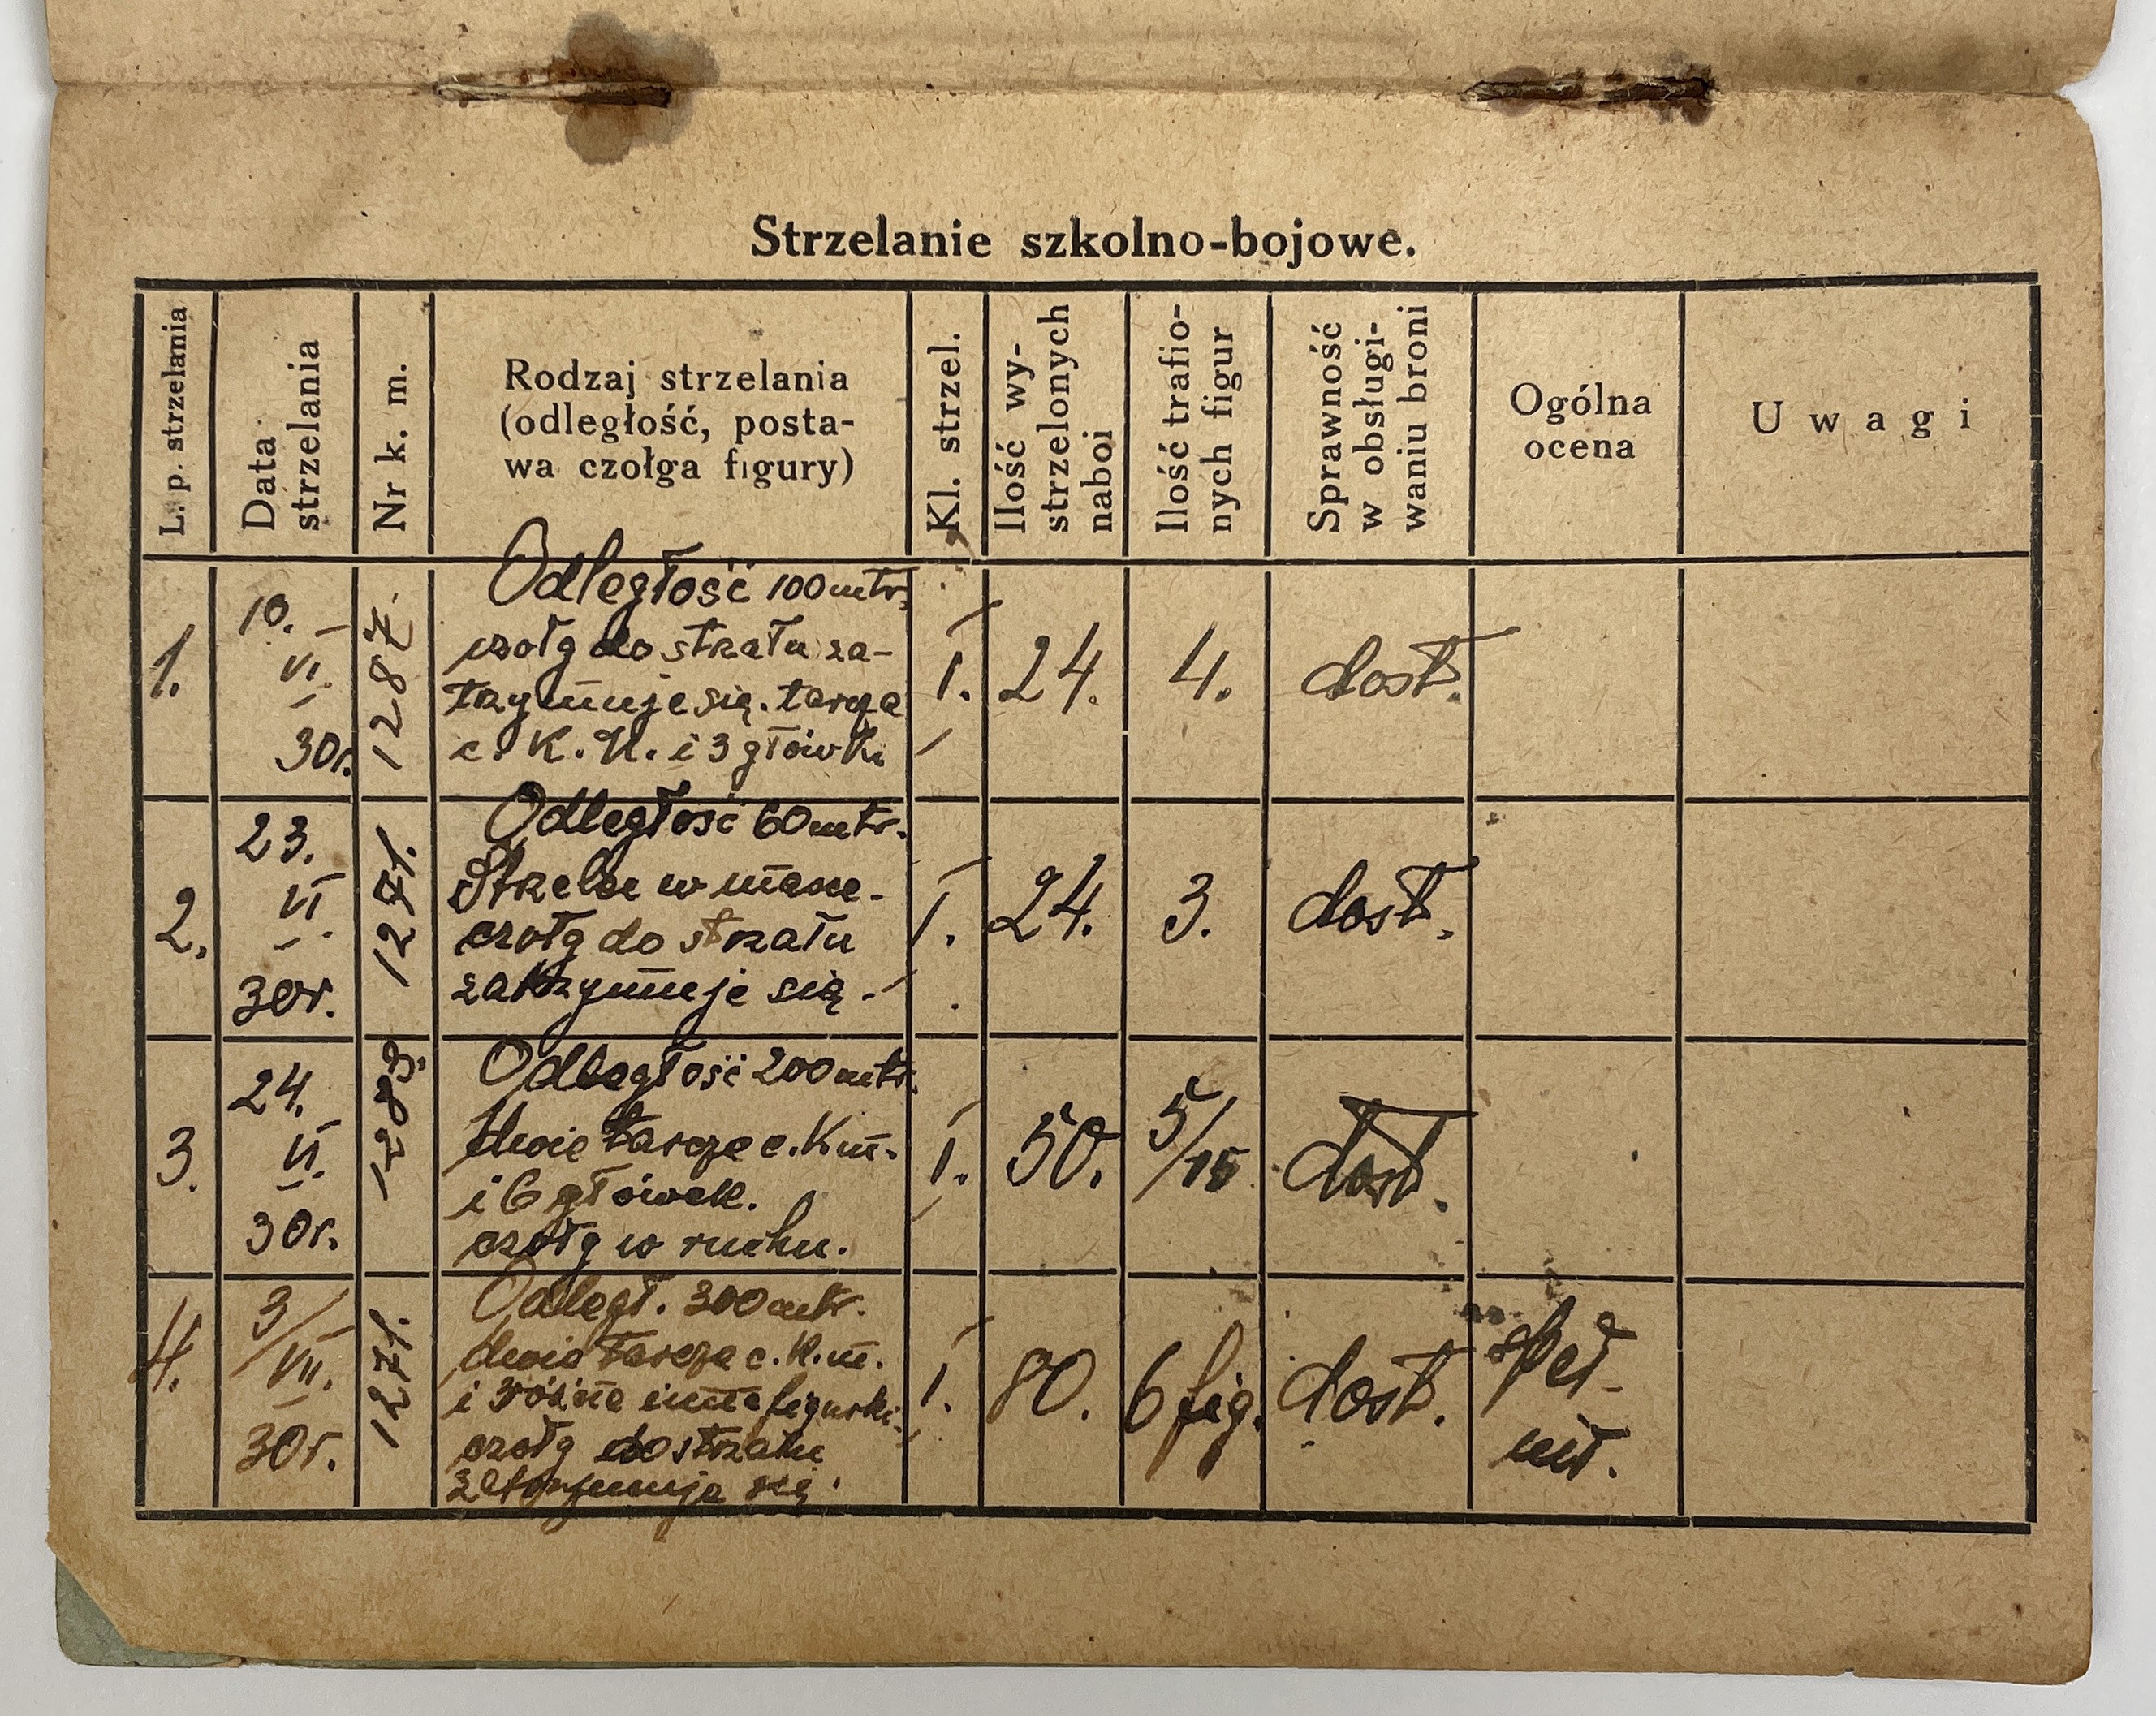 Strzelanie szkolno-bojowe.
L. p. strzelania
Data
strzelania
Nr k. m.
Rodzaj strzelania
(odległość, posta-
wa czołga figury)
Kl. strzel.
Ilość wy-
strzelonych
naboi
Ilość trafio-
nych figur
Sprawność
w obsługi-
waniu broni
Ogólna
ocena
Uwagi
1.
10.
VI.
30r.
1287.
Odległość 100 mtr.
czołg do strzału za-
trzymuje się. tarcza
c. K. M. i 3 główki
I.
24.
4.
dost.
2.
23.
VI.
30r.
1271.
Odległość 60 mtr.
w masce.
czołg do strzału
zatrzymuje się.
I.
24.
3.
dost.
3.
24.
VI.
30r.
1283.
Odległość 200 mtr.
dwie tarcze c. K m.
i 6 główek.
czołg w ruchu.
I.
50.
5/15
dost.
4.
3/
VII.
30r.
1271.
Odległ. 300 mtr.
dwie tarcze c. K. m.
i różne inne figurki
czołg do strzału
zatrzymuje się.
I.
80.
6 fig.
dost.